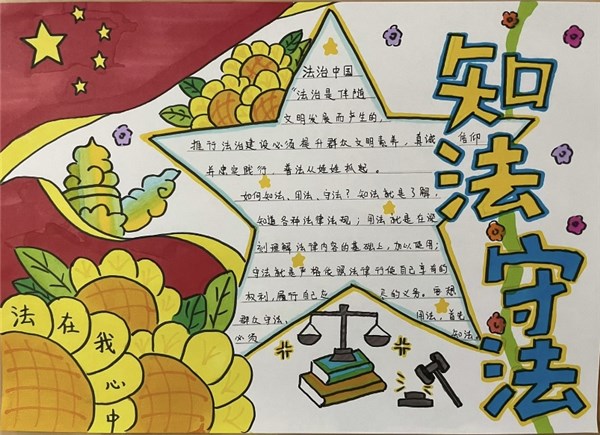 知法守法
法治中国
"法治是伴随
文明发展而产生的,
推行法治建设必须提升群众文明素养,真诚 信仰
并坚定践行,普法从娃娃抓起。
如何知法、用法、守法?知法就是了解,
知道各种法律法规;用法就是在深
刻理解法律内容的基础上,加以运用;
守法就是严格依照法律行使自己享有的
权利,履行自己应 尽的义务。要想
群众守法、 用法,首先
必须 知法。
法在我心中